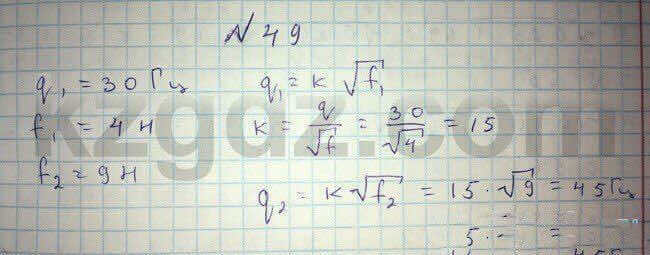 N 49
q₁ = 30 Гц
f₁ = 4 Н
f₂ = 9 Н
q₁ = к √f₁
к = q/√f = 30/√4 = 15
q₂ = к √f₂ = 15 · √9 = 45 Гц
5 · - =
kzgdz.com